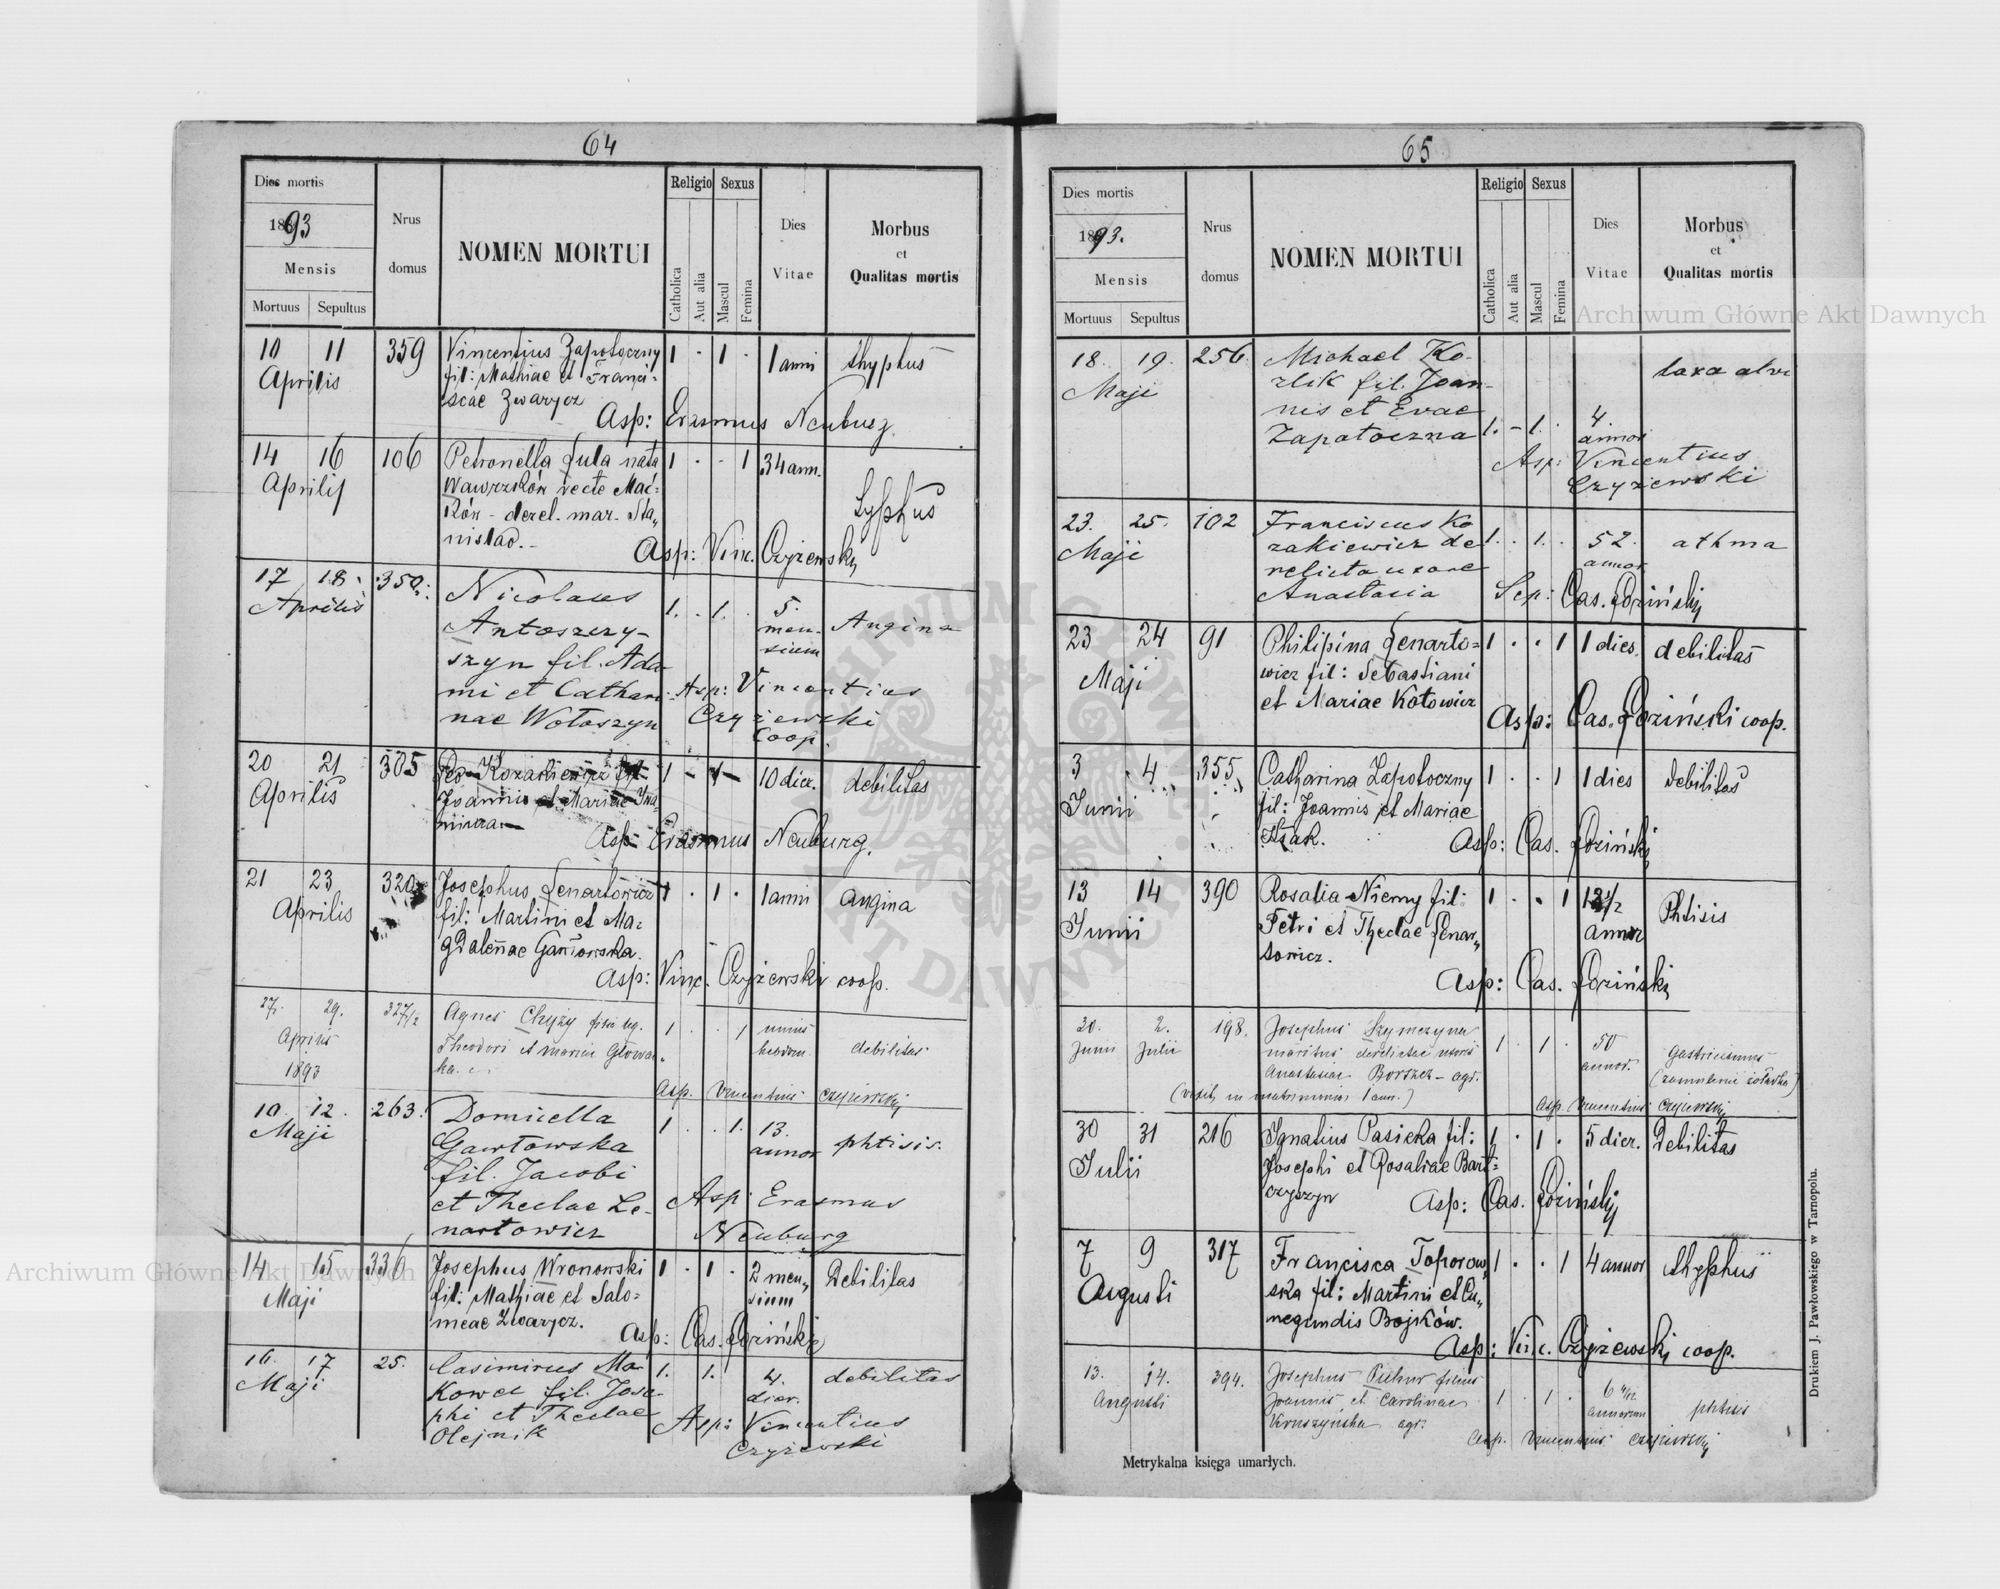 64
Dies mortis
1893
Mensis
Mortuus Sepultus
Nrus
domus
NOMEN MORTUI
Religio Sexus
Catholica
Aut alia
Mascul
Femina
Dies
Vitae
Morbus
et
Qualitas mortis
10 11 359 Vincentius Zapotoczny 1 · 1 · 1 anni thyphus
Aprilis fil: Mathiae et Franci-
scae Zwarycz
Asp: Erasmus Neuburg
14 16 106 Petronella Lula nata 1 · · 1 34 ann.
Aprilis Wawrzków recte Mać-
ków - derel. mar. Sta- Typhus
nislao.-
Asp: Vinc. Czyżewski
17 18 350 Nicolaus
Aprilis Antoszczy- 1. · 1. 5 men- Angina
szyn fil. Ada- sium
mi et Cathari- Asp: Vincentius
nae Wołoszyn Czyżewski
Coop.
20 21 305 Leo Kozakiewicz fil. 1 - 1 - 10 dier. debilitas
Aprilis Joannis et Mariae
Asp: Erasmus Neuburg.
21 23 320 Josephus Lenartowicz 1 · 1 · 1 anni angina
Aprilis fil: Martini et Ma-
gdalenae Gawłowska.
Asp: Vinc. Czyżewski coop.
27. 29. 327/2 Agnes Chyży filia leg. 1 · · 1 unius
Aprilis Theodori et Mariae Głowac- hebdom. debilitas
1893 ka.
Asp. Vincentius Czyżewski
10. 12. 263. Domicella
Maji Gawłowska 1 · · 1. 13. annor phtisis.
fil. Jacobi
et Theclae Le- Asp: Erasmus
nartowicz Neuburg
14 15 336 Josephus Wronowski 1 · 1 · 2 men- Debilitas
Maji fil: Mathiae et Salo- sium
meae Zwarycz.
Asp: Cas. Łoziński
16. 17 25. Casimirus Ma- 1. 1. 4. debilitas
Maji kowet fil. Jose- dier.
phi et Theclae Asp: Vincentius
Olejnik Czyżewski
65
Dies mortis
1893.
Mensis
Mortuus Sepultus
Nrus
domus
NOMEN MORTUI
Religio Sexus
Catholica
Aut alia
Mascul
Femina
Dies
Vitae
Morbus
et
Qualitas mortis
18. 19. 256 Michael Ko- laxa alvi
Maji zlik fil. Joan-
nis et Evae 4.
Zapotoczna 1. - 1. · annor
Asp: Vincentius
Czyżewski
23. 25. 102 Franciscus Ko
Maji zakiewicz de 1. · 1. · 52. athma
relicta uxore annor
Anastasia Sep: Cas. Łoziński
23 24 91 Philipina Lenarto- 1 · · 1 1 dies. debilitas
Maji wicz fil: Sebastiani
et Mariae Kotowicz
Asp: Cas. Łoziński coop.
3 4 355 Catharina Zapotoczny 1 · · 1 1 dies Debilitas
Junii fil: Joannis et Mariae
Asp: Cas. Łoziński
13 14 390 Rosalia Niemy fil: 1 · · 1 Phtisis
Junii Petri et Theclae Lenar- annor
towicz.
Asp: Cas. Łoziński
30. 2. 198. Josephus Szymczyna
Junii Julii maritus derelictae uxoris 1 · 1 · 50 gastricismus
Anastasiae Borszcz - agr. annor. (zamulenie żołądka)
(vixit in matrimonio 1 ann.)
Asp. Vincentius Czyżewski
30 31 216 Ignatius Pasieka fil: 1 · 1 · 5 dier. Debilitas
Julii Josephi et Rosaliae Bart-
czyszyn
Asp: Cas. Łoziński
7 9 317 Francisca Toporow- 1 · · 1 4 annor thyphus
Augusti ska fil: Martini et Cu-
negundis Bojków.
Asp: Vinc. Czyżewski coop.
13. 14. 394. Josephus Puhur filius
Augusti Joannis et Carolinae 1 · 1 · 6 4/12 phtisis
Kruszyńska agr: annorum
Asp. Vincentius Czyżewski
Metrykalna księga umarłych.
Drukiem J. Pawłowskiego w Tarnopolu.
Archiwum Główne Akt Dawnych
Archiwum Główne Akt Dawnych
ARCHIWUM GŁÓWNE AKT DAWNYCH